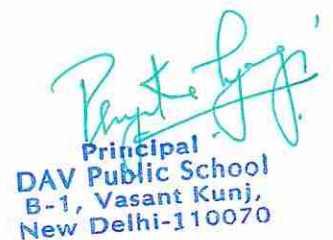 Principal
DAV Public School
B-1, Vasant Kunj,
New Delhi-110070